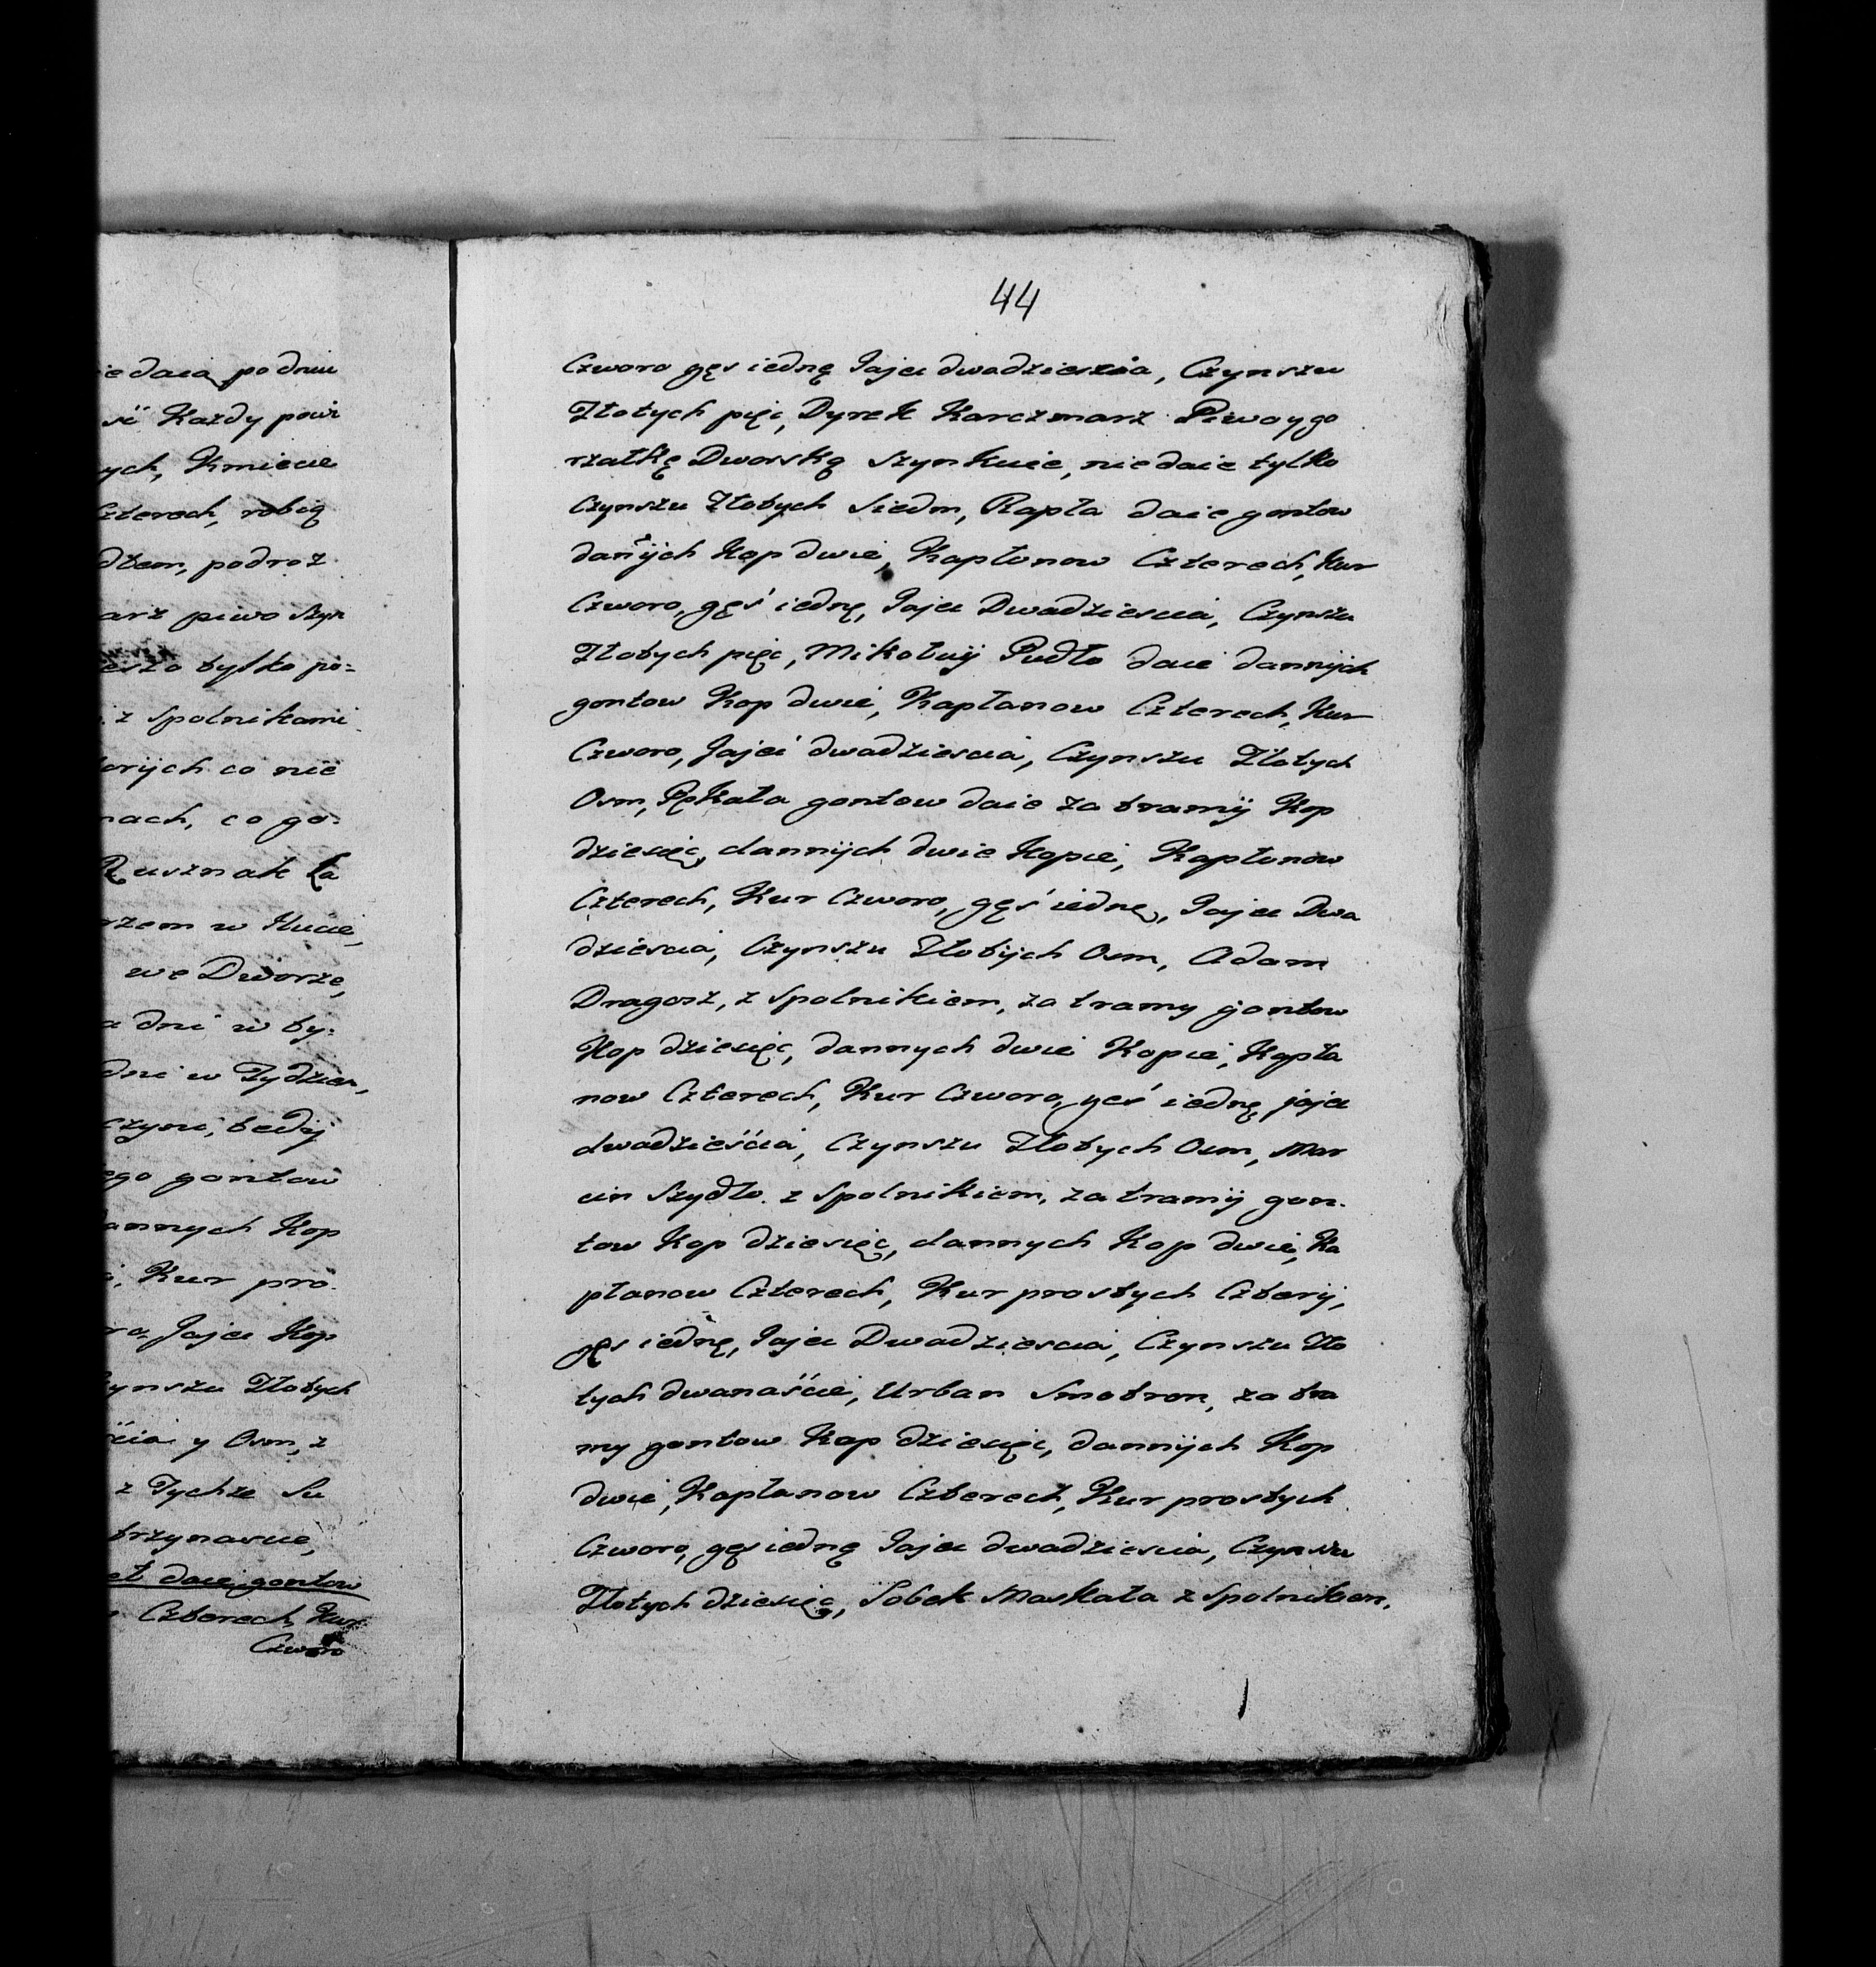 iedaia podniu
Każdy powi
ych, Kmiecie
Czterech, robią
dłem, podroż
arz piwo szyn
eszo tylko po=
z Spolnikami
orych co nie
nach, co go=
Rusznak ta
rzem w Hucie,
we Dworze,
a dni w ty=
dni w Tydzien,
czyni, bedij
ego gontow
annych Kop
Kur pro=
ro, Jajec Kop
zynszu Złotych
ścia y Osm, z
z Tychże Su
trzynascie,
et daie gontow
Czterech, Kur
Czworo
44
Czworo gęs iednę Jajec dwadziescia, Czynszu
Złotych pięc, Dyrek Karczmarz Piwo y go
rzałkę Dworską szynkuie, nie daie tylko
Czynszu Złotych Siedm, Rapta daie gontow
dannÿch Kop dwie, Kapłonow Czterech, Kur
Czworo, gęś iednę, Jajec Dwadziescia, Czynszu
Złotych pięc, Mikołaÿ Pudło daie dannÿch
gontow Kop dwie, Kapłanow Czterech, Kur
Czworo, Jajec dwadziescia, Czynszu Złotych
Osm, Rękata gontow daie za tramÿ Kop
dziesięc, dannÿch dwie Kopie, Kapłonow
Czterech, Kur Czworo, gęś iednę, Jajec Dwa
dziescia, Czynszu Złotÿch Osm, Adam
Dragosz, z Spolnikiem, za tramy gontow
Kop dziesięc, dannych dwie Kopie, Kapła
now Czterech, Kur Czworo, gęś iednę jajec
dwadzieścia, Czynszu Złotych Osm, Mar
cin Szydło z Spolnikiem, za tramÿ gon=
tow Kop dziesięc, dannych Kop dwie, Ka
płanow Czterech, Kur prostych Czterÿ,
gęs iednę, Jajec Dwadziescia, Czynszu Zło
tych dwanaście, Urban Smotron, za tra
my gontow Kop dziesięc, dannÿch Kop
dwie, Kapłanow Czterech, Kur prostych
Czworo, gęs iednę Jajec dwadziescia, Czynszu
Złotych dziesięc, Sobek Maskata z Spolnikiem,